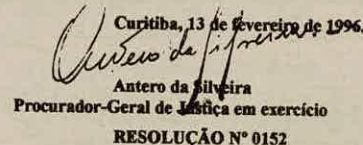 Curitiba, 13 de fevereiro de 1996.
Antero da Silveira
Procurador-Geral de Justiça em exercício
RESOLUÇÃO Nº 0152